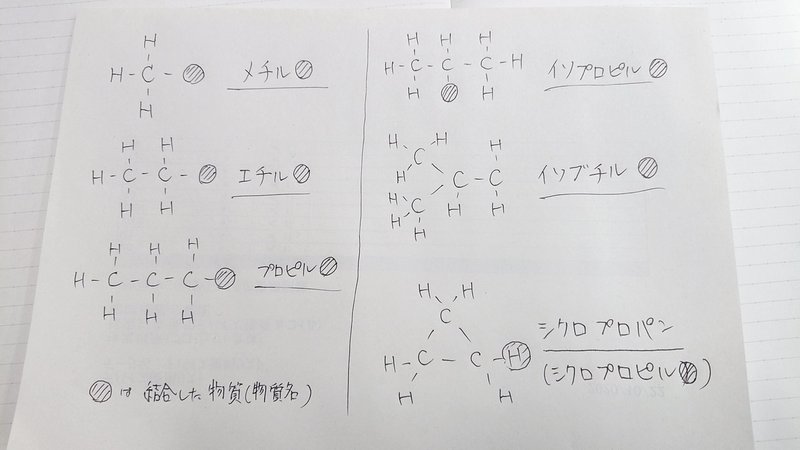 H
H-C-
H
メチル
H H
H-C-C-
H H
エチル
H H H
H-C-C-C-
H H H
プロピル
は 結合した物質(物質名)
H H H
H-C-C-C-H
H H
イソプロピル
H H
C H
H
C-C
H
C H H
H
H
イソブチル
H H
C
H-C-C-H
H H
シクロプロパン
(シクロプロピル)